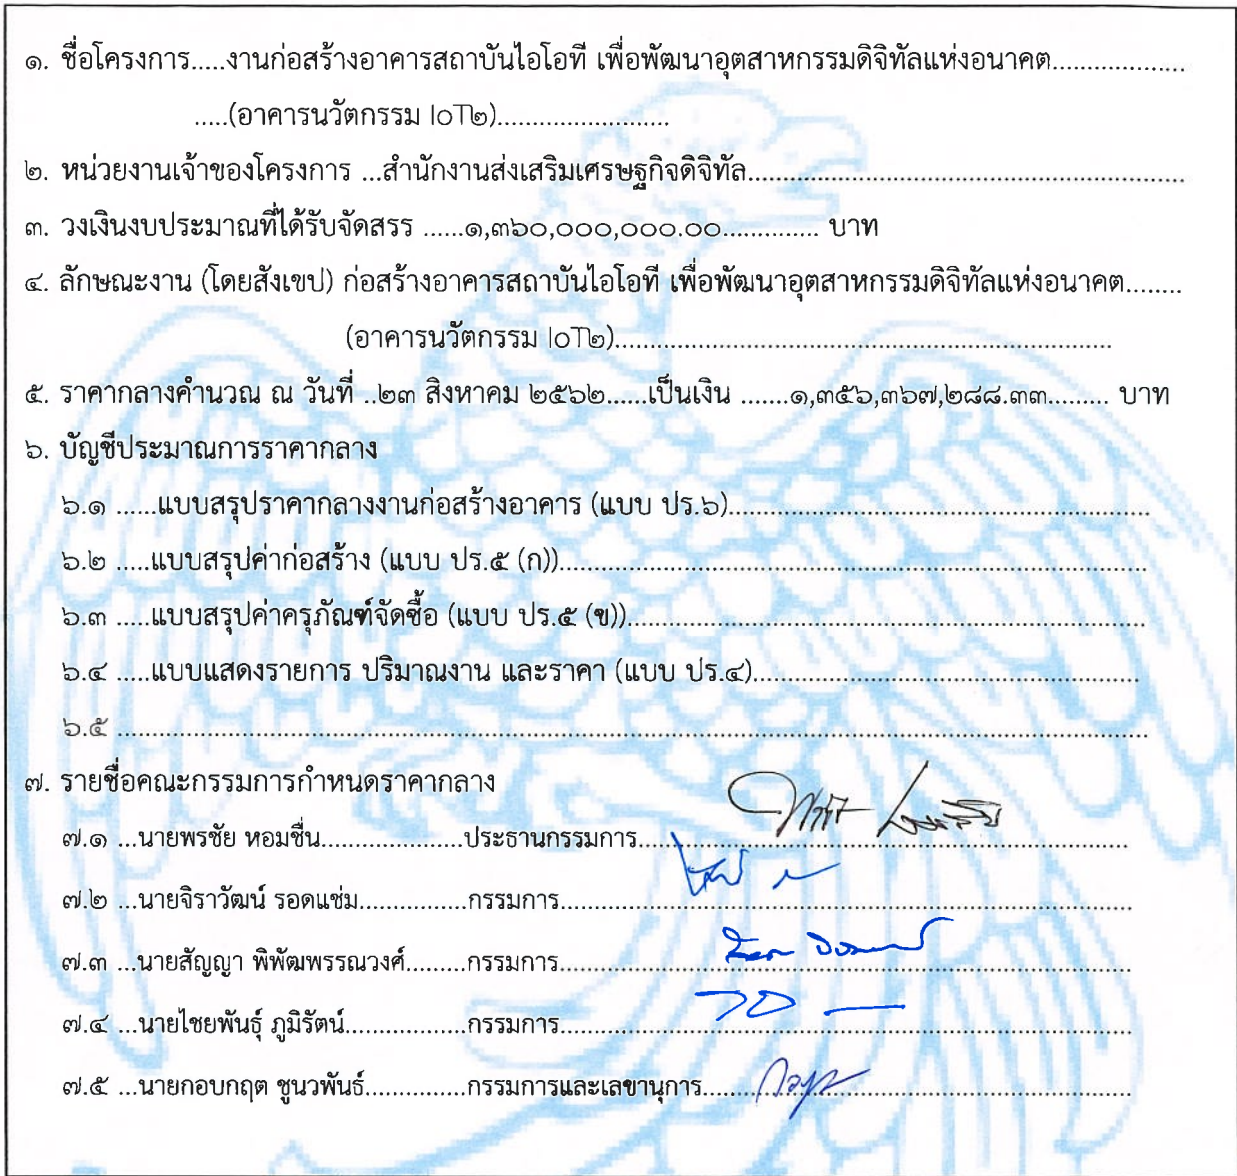 ๑. ชื่อโครงการ.....งานก่อสร้างอาคารสถาบันไอโอที เพื่อพัฒนาอุตสาหกรรมดิจิทัลแห่งอนาคต...................
.....(อาคารนวัตกรรม IoT๒).........................
๒. หน่วยงานเจ้าของโครงการ ...สำนักงานส่งเสริมเศรษฐกิจดิจิทัล..............................................................
๓. วงเงินงบประมาณที่ได้รับจัดสรร ......๑,๓๖๐,๐๐๐,๐๐๐.๐๐.............. บาท
๔. ลักษณะงาน (โดยสังเขป) ก่อสร้างอาคารสถาบันไอโอที เพื่อพัฒนาอุตสาหกรรมดิจิทัลแห่งอนาคต........
(อาคารนวัตกรรม IoT๒).......................................................................
๕. ราคากลางคำนวณ ณ วันที่ ..๒๓ สิงหาคม ๒๕๖๒......เป็นเงิน .......๑,๓๕๖,๓๖๗,๒๘๘.๓๓......... บาท
๖. บัญชีประมาณการราคากลาง
๖.๑ ......แบบสรุปราคากลางงานก่อสร้างอาคาร (แบบ ปร.๖)............................................................
๖.๒ .....แบบสรุปค่าก่อสร้าง (แบบ ปร.๕ (ก))....................................................................................
๖.๓ .....แบบสรุปค่าครุภัณฑ์จัดซื้อ (แบบ ปร.๕ (ข))..........................................................................
๖.๔ .....แบบแสดงรายการ ปริมาณงาน และราคา (แบบ ปร.๔).......................................................
๖.๕ ....................................................................................................................................................
๗. รายชื่อคณะกรรมการกำหนดราคากลาง
๗.๑ ...นายพรชัย หอมชื่น.....................ประธานกรรมการ......................................................................
๗.๒ ...นายจิราวัฒน์ รอดแช่ม................กรรมการ..................................................................................
๗.๓ ...นายสัญญา พิพัฒพรรณวงศ์.........กรรมการ..................................................................................
๗.๔ ...นายไชยพันธุ์ ภูมิรัตน์..................กรรมการ..................................................................................
๗.๕ ...นายกอบกฤต ชูนวพันธ์...............กรรมการและเลขานุการ.............................................................